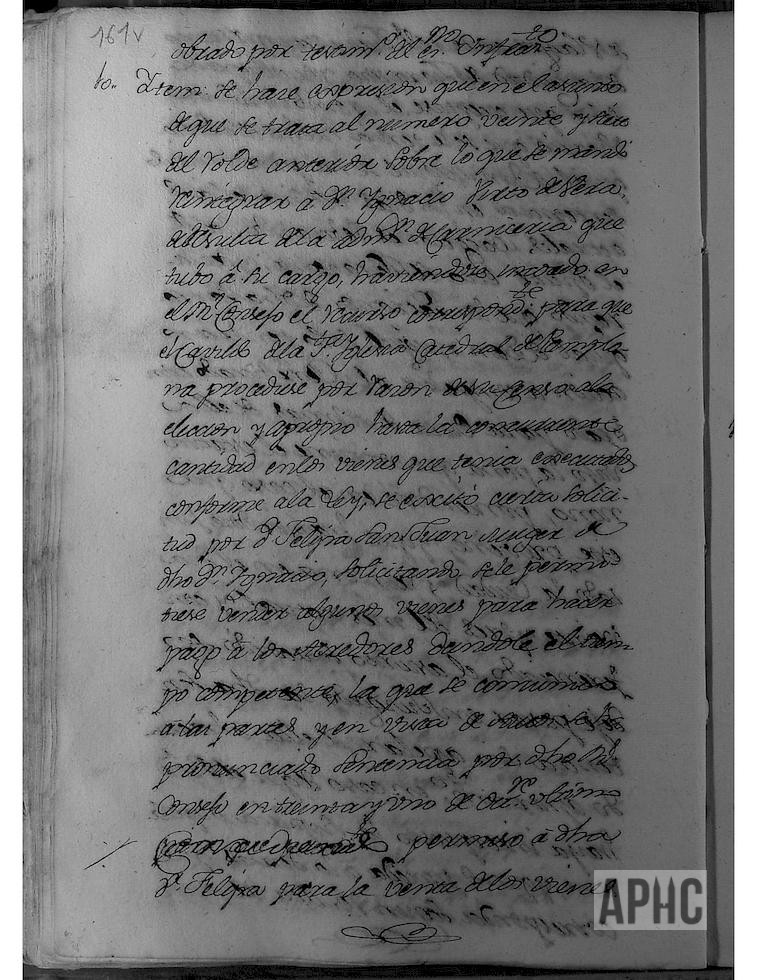 161v
obrado por testimo. del eno. Infrato.
10.. Item: se hace expresion que en el asunto
de que se trata al número veinte y siete
del Rolde anterior sobre lo que se mandó
reintegrar á Dn. Ignacio Virto de Vera,
de resulta de la admon. de Carniceria que
tubo á su cargo, haviendose incoado en
el Rl. Consejo el recurso correspondte. para que
el Cavildo de la Sta. Yglesia Catedral de Pamplo-
na procediese por razon de su Censo a la
eleccion y apropio hasta la concurrente
cantidad en los vienes que tenia executados
conforme a la Ley, se excitó cierta solici-
tud por Da. Felipa San Juan Muger de
dho Dn. Ygnacio, solicitando se le permi-
tiese vender algunos vienes para hacer
pago á los Acredores dandole el tiem-
po competente, la que se comunicó
a las partes y en vista de se ha
pronunciado Sentencia por dho Rl.
Consejo en treinta y uno de ultimo
permiso á dha
Da. Felipa para la venta de los vienes
APHC